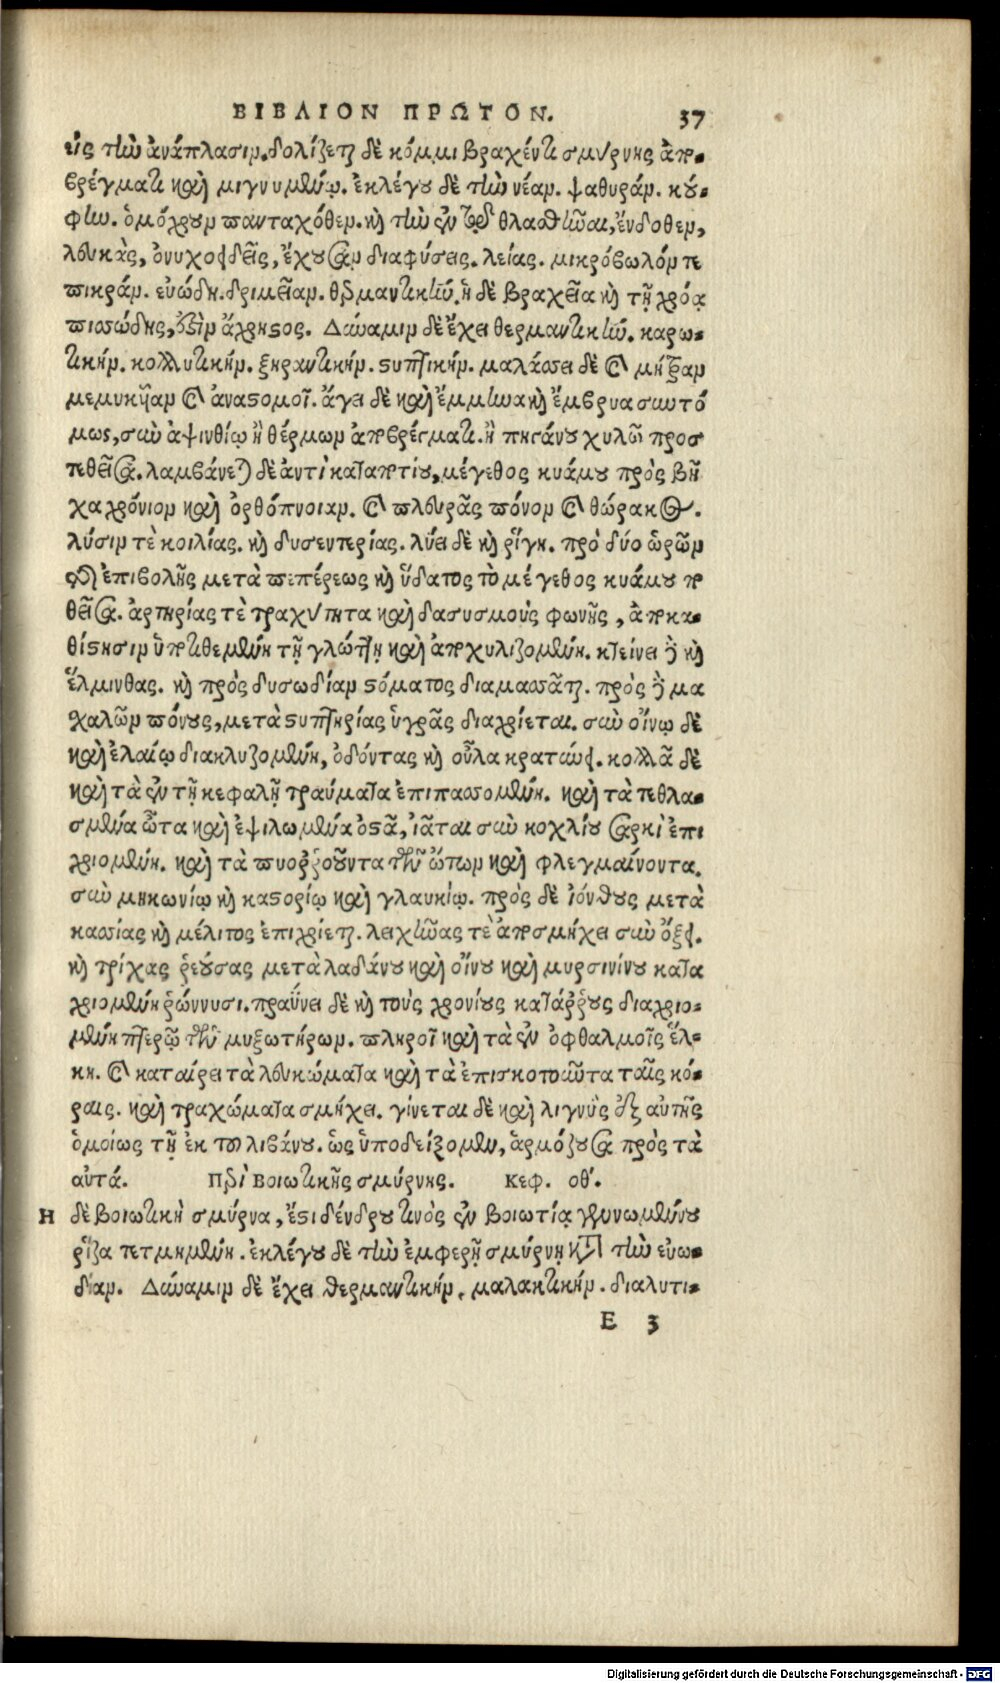 ΒΙΒΛΙΟΝ ΠΡΩΤΟΝ. 37
εἰς τὴν ἀνάπλασιν. δολίζεται δὲ κόμμι βραχέντι σμύρνης ἀπο-
βρέγματι καὶ μιγνυμένῳ. ἐκλέγου δὲ τὴν νέαν. ψαθυράν. κού-
φην. ὁμόχρουν πανταχόθεν. καὶ τὴν ἐν τῷ θλασθῆναι, ἔνδοθεν,
λευκὰς, ὀνυχοειδεῖς, ἔχουσαν διαφύσεις. λείας. μικρόβωλόν τε
πικράν. εὐώδη. δριμεῖαν. θερμαντικήν. ἡ δὲ βραχεῖα καὶ τῇ χρόᾳ
πισσώδης, ἐστὶν ἄχρηστος. Δύναμιν δὲ ἔχει θερμαντικήν. καρω-
τικήν. κολλυτικήν. ξηραντικήν. στυπτικήν. μαλάσσει δὲ καὶ μήτραν
μεμυκῆαν καὶ ἀναστομοῖ. ἄγει δὲ καὶ ἔμμηνα καὶ ἔμβρυα συντό
μως, σὺν ἀψινθίῳ ἢ θέρμων ἀποβρέγματι. ἢ πηγάνου χυλῷ προσ
τεθεῖσα. λαμβάνεται δὲ ἀντὶ καταποτίου, μέγεθος κυάμου πρὸς βῆ
χα χρόνιον καὶ ὀρθόπνοιαν. καὶ πλευρᾶς πόνον καὶ θώρακος.
λύσιν τὲ κοιλίας. καὶ δυσεντερίας. λύει δὲ καὶ ῥίγη. πρὸ δύο ὡρῶν
τῆς ἐπιβολῆς μετὰ πεπέρεως καὶ ὕδατος τὸ μέγεθος κυάμου πο
θεῖσα. ἀρτηρίας τὲ τραχύτητα καὶ δασυσμοὺς φωνῆς, ἀποκα-
θίστησιν ὑποτιθεμένη τῇ γλώττῃ καὶ ἀποχυλιζομένη. κτείνει δὲ καὶ
ἕλμινθας. καὶ πρὸς δυσωδίαν στόματος διαμασσᾶται. πρὸς δὲ μα
χαλῶν πόνους, μετὰ στυπτηρίας ὑγρᾶς διαχρίεται. σὺν οἴνῳ δὲ
καὶ ἐλαίῳ διακλυζομένη, ὀδόντας καὶ οὖλα κρατύνει. κολλᾶ δὲ
καὶ τὰ ἐν τῇ κεφαλῇ τραύματα ἐπιπασσομένη. καὶ τὰ τεθλα-
σμένα ὦτα καὶ ἐψιλωμένα ὀστᾶ, ἰᾶται σὺν κοχλίου σαρκὶ ἐπι
χριομένη. καὶ τὰ πυορροοῦντα τῶν ὤτων καὶ φλεγμαίνοντα.
σὺν μηκωνίῳ καὶ καστορίῳ καὶ γλαυκίῳ. πρὸς δὲ ἰόνθους μετὰ
κασσίας καὶ μέλιτος ἐπιχρίεται. λειχῆνας τὲ ἀποσμήχει σὺν ὄξει.
καὶ τρίχας ῥεούσας μετὰ λαδάνου καὶ οἴνου καὶ μυρσινίνου κατα
χριομένη ῥώννυσι. πραΰνει δὲ καὶ τοὺς χρονίους κατάρρους διαχριο-
μένη πτερῷ τῶν μυξωτήρων. πληροῖ καὶ τὰ ἐν ὀφθαλμοῖς ἕλ-
κη. καὶ καταίρει τὰ λευκώματα καὶ τὰ ἐπισκοτοῦντα ταῖς κό-
ραις. καὶ τραχώματα σμήχει. γίνεται δὲ καὶ λιγνὺς ἐξ αὐτῆς
ὁμοίως τῇ ἐκ τοῦ λιβάνου. ὡς ὑποδείξομεν, ἁρμόζουσα πρὸς τὰ
αὐτά. Περὶ Βοιωτικῆς σμύρνης. Κεφ. οθ΄.
Η δὲ βοιωτικὴ σμύρνα, ἔστι δένδρου τινὸς ἐν βοιωτίᾳ γεννωμένου
ῥίζα τετμημένη. ἐκλέγου δὲ τὴν ἐμφερῆ σμύρνῃ κατὰ τὴν εὐω-
δίαν. Δύναμιν δὲ ἔχει θερμαντικήν, μαλακτικήν. διαλυτι-
E 3
Digitalisierung gefördert durch die Deutsche Forschungsgemeinschaft - DFG